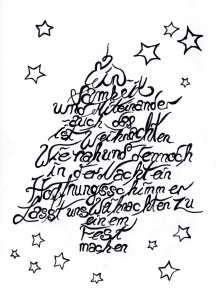 Ein
samkeit
und Miteinander
auch das
ist Weihnachten
Wie nah und dennoch
in der Nacht ein
Hoffnungsschimmer
Lasst uns Weihnachten zu
einem
Fest
machen